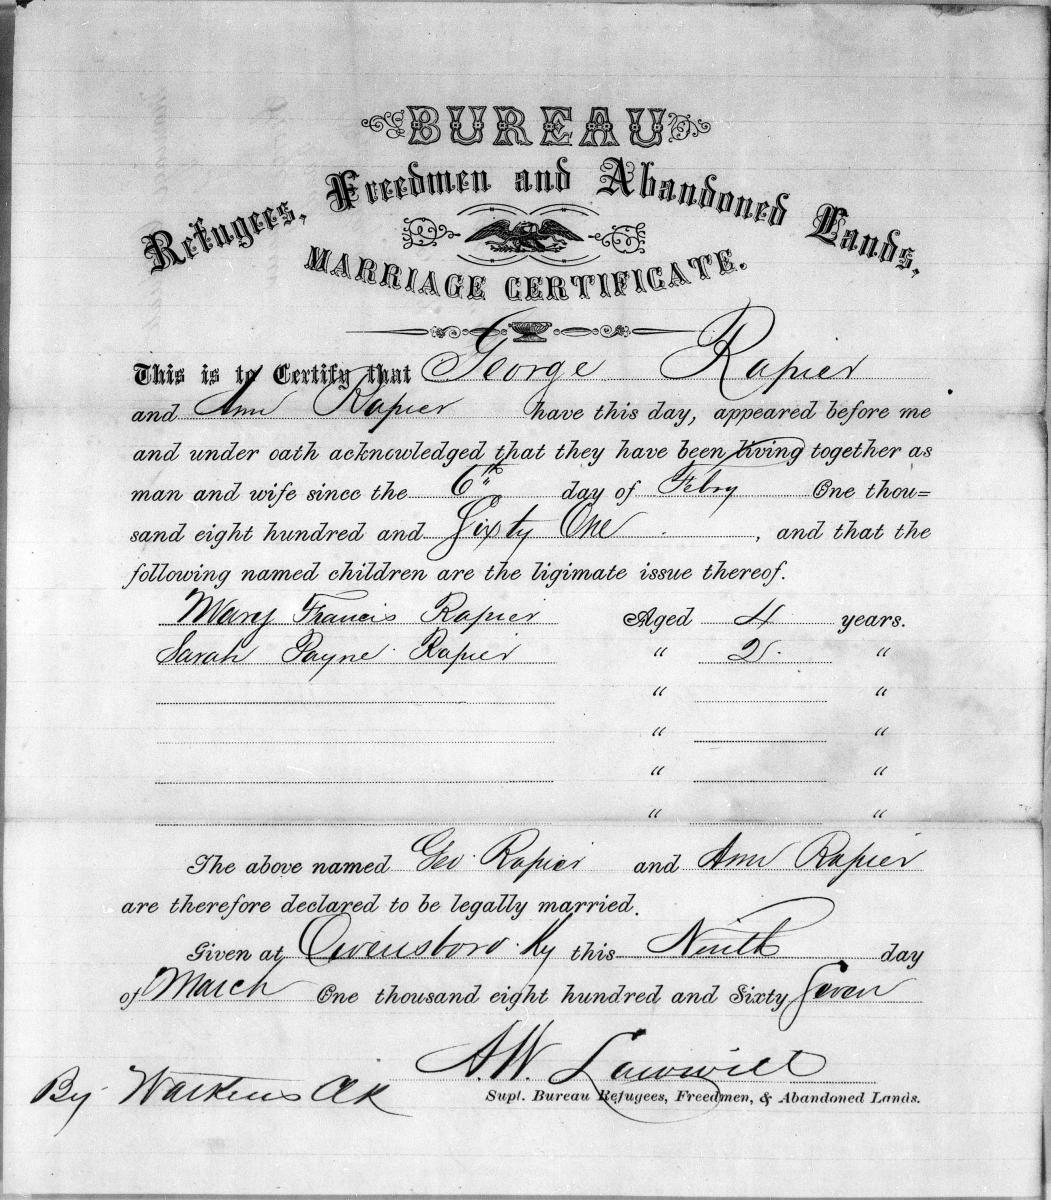 BUREAU
Refugees, Freedmen and Abandoned Lands,
MARRIAGE CERTIFICATE.
This is to Certify that George Rapier
and Ann Rapier have this day, appeared before me
and under oath acknowledged that they have been living together as
man and wife since the 6th day of Febry One thou=
sand eight hundred and Sixty One, and that the
following named children are the ligimate issue thereof.
Mary Francis Rapier Aged 4 years.
Sarah Payne Rapier " 2 "
" "
" "
" "
" "
The above named Geo Rapier and Ann Rapier
are therefore declared to be legally married.
Given at Owensboro Ky this Ninth day
of March One thousand eight hundred and Sixty Seven
A.W. Lawwill
By Watkins Clk
Supt. Bureau Refugees, Freedmen, & Abandoned Lands.